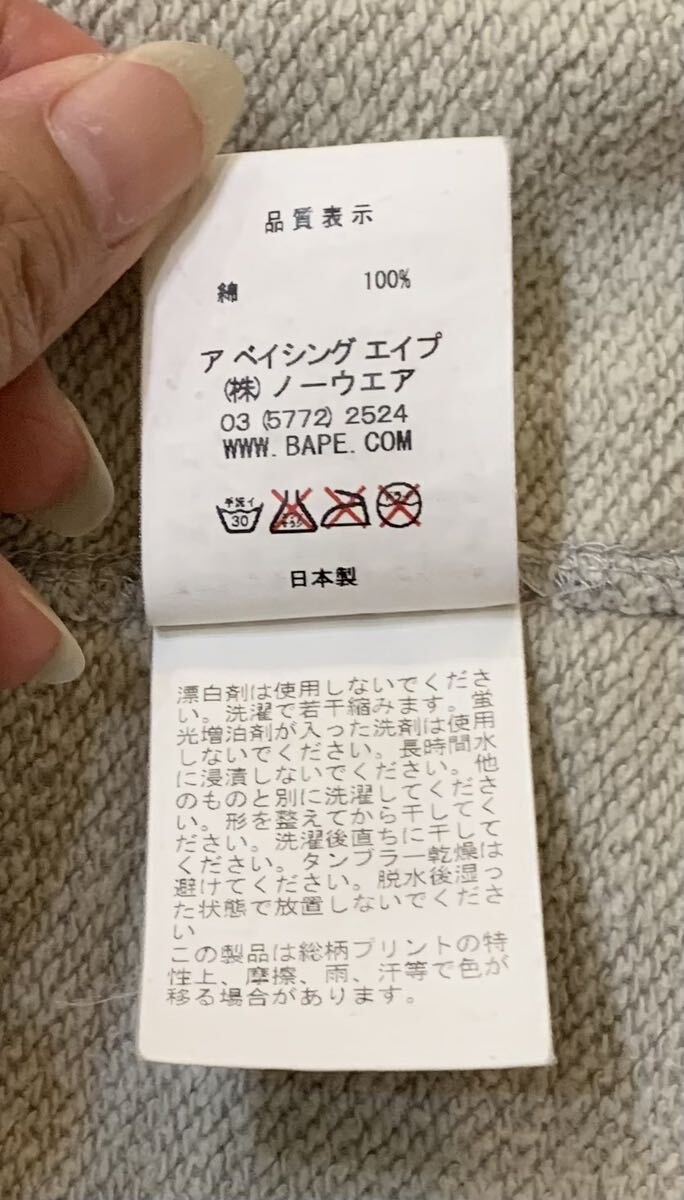 品質表示
綿 100%
ア ベイシング エイプ
(株) ノーウエア
03 (5772) 2524
WWW. BAPE. COM
手洗イ
30
エンソ
ドライ
日本製
漂白剤は使用しないでくださ
い。洗濯で若干縮みます。蛍
光増泊剤が入った洗剤は使用
しないでください。長時間水
に浸漬しないでください。他
のものと別に洗濯してくださ
い。形を整えてから干してく
ださい。洗濯後直ちに干して
ください。タンブラー乾燥は
避けてください。脱水後湿っ
た状態で放置しないでくださ
い
この製品は総柄プリントの特
性上、摩擦、雨、汗等で色が
移る場合があります。